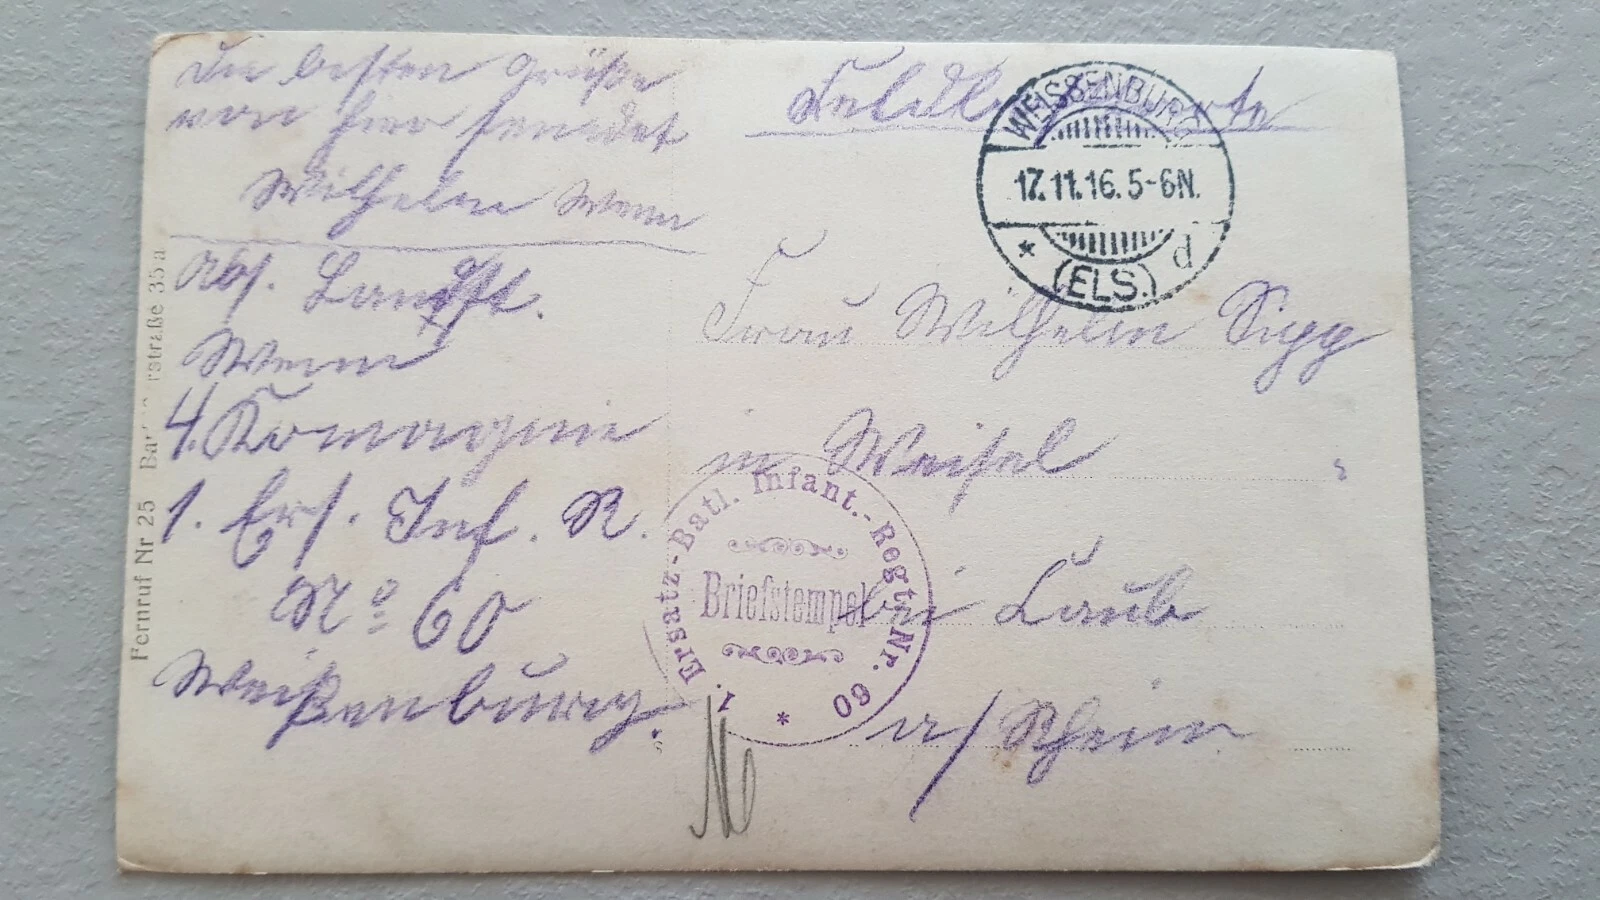 Die besten Grüße
von hier sendet
Wilhelm Wenn
Abs. Landst.
Wenn
4. Kompagnie
1. Ers. Inf. R.
No 60
Weißenburg.
Fernruf Nr 25
straße 35a
WEISSENBURG
17.11.16. 5-6N.
* d
(ELS.)
Frau Wilhelm Sigg
in Weisel
bei Caub
a/Rhein
1. Ersatz-Batl. Infant.-Regt. Nr. 60
Briefstempel
*